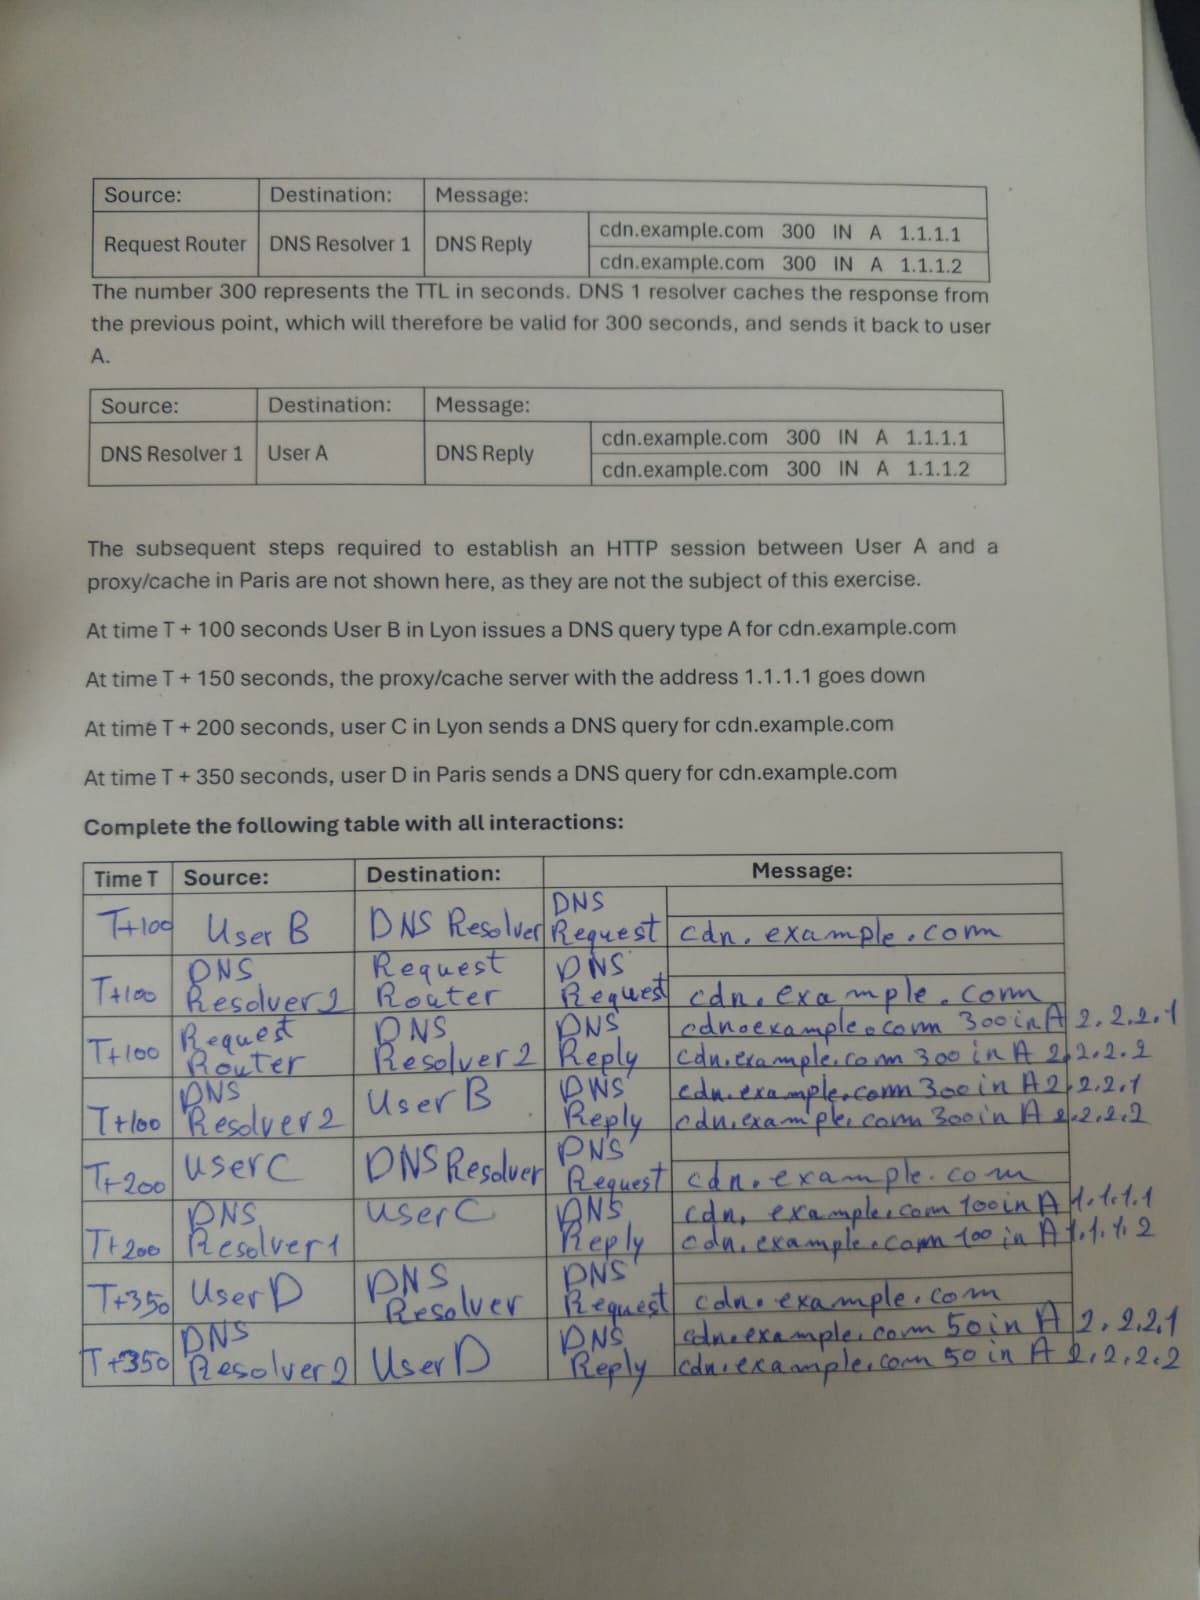 Source: Destination: Message:
Request Router DNS Resolver 1 DNS Reply cdn.example.com 300 IN A 1.1.1.1
cdn.example.com 300 IN A 1.1.1.2
The number 300 represents the TTL in seconds. DNS 1 resolver caches the response from
the previous point, which will therefore be valid for 300 seconds, and sends it back to user
A.
Source: Destination: Message:
DNS Resolver 1 User A DNS Reply cdn.example.com 300 IN A 1.1.1.1
cdn.example.com 300 IN A 1.1.1.2
The subsequent steps required to establish an HTTP session between User A and a
proxy/cache in Paris are not shown here, as they are not the subject of this exercise.
At time T + 100 seconds User B in Lyon issues a DNS query type A for cdn.example.com
At time T + 150 seconds, the proxy/cache server with the address 1.1.1.1 goes down
At time T + 200 seconds, user C in Lyon sends a DNS query for cdn.example.com
At time T + 350 seconds, user D in Paris sends a DNS query for cdn.example.com
Complete the following table with all interactions:
Time T Source: Destination: Message:
T+100 User B DNS Resolver DNS Request cdn.example.com
T+100 DNS Resolver 2 Request Router DNS Request cdn.example.com
T+100 Request Router DNS Resolver 2 DNS Reply cdn.example.com 300 in A 2.2.2.1
cdn.example.com 300 in A 2.2.2.2
T+100 DNS Resolver 2 User B DNS Reply cdn.example.com 300 in A 2.2.2.1
cdn.example.com 300 in A 2.2.2.2
T+200 user C DNS Resolver DNS Request cdn.example.com
T+200 DNS Resolver 1 user C DNS Reply cdn.example.com 100 in A 1.1.1.1
cdn.example.com 100 in A 1.1.1.2
T+350 User D DNS Resolver DNS Request cdn.example.com
T+350 DNS Resolver 2 User D DNS Reply cdn.example.com 50 in A 2.2.2.1
cdn.example.com 50 in A 2.2.2.2